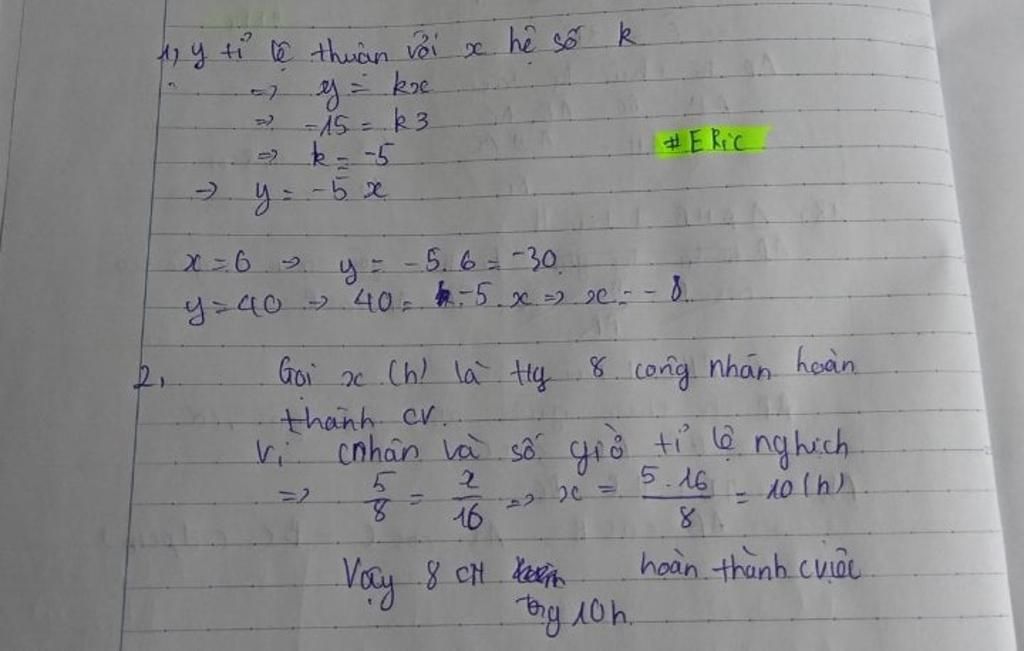 1, y tỉ lệ thuận với x hệ số k
=> y = kx
=> -15 = k3
=> k = -5
#ERic
=> y = -5 x
x = 6 => y = -5. 6 = -30.
y = 40 -> 40 = -5. x => x = - 8.
2, Gọi x (h) là tg 8 công nhân hoàn
thành cv.
Vì cnhân và số giờ tỉ lệ nghịch
=> 5/8 = x/16 => x = 5.16/8 = 10 (h)
Vậy 8 CN hoàn thành cviệc
tng 10h.